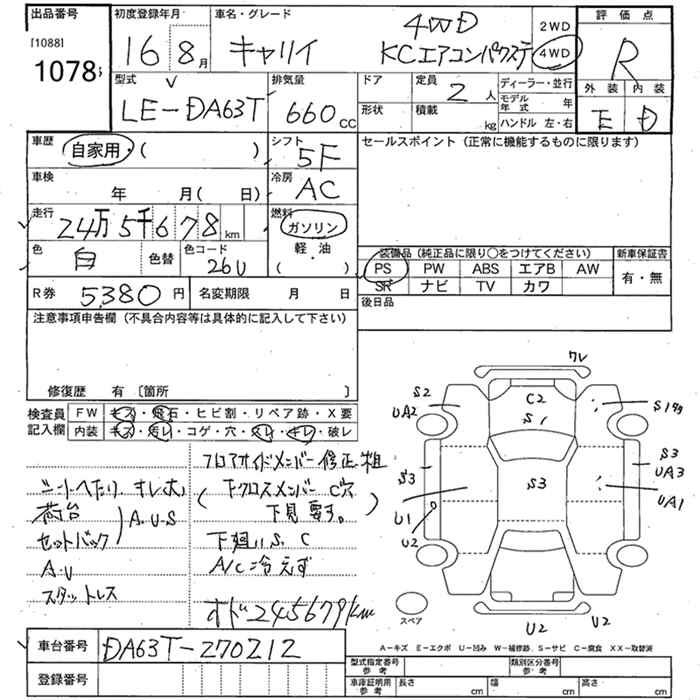 出品番号 初度登録年月 車名・グレード 評価点
[1088] 1078
16 8月 キャリイ 4WD 2WD
KCエアコンパワステ 4WD R
型式 排気量 ドア 定員 2人 ディーラー・並行 外装 内装
LE-DA63T 660cc 形状 積載 kg モデル年式 年 E D
ハンドル 左・右
車歴 自家用・( ) シフト 5F セールスポイント(正常に機能するものに限ります)
車検 年 月(日) 冷房 AC
走行 24万5千678km 燃料 ガソリン
色 白 色替 色コード 26U 軽・油 ( )
装備品(純正品に限り○をつけてください) 新車保証書
PS PW ABS エアB AW 有・無
SR ナビ TV カワ
R券 5380円 名変期限 月 日 後日品
注意事項申告欄(不具合内容等は具体的に記入して下さい)
修復歴 有 〔箇所 〕
検査員 FW キズ・飛石・ヒビ割・リペア跡・X要
記入欄 内装 キズ・汚レ・コゲ・穴・スレ・キレ・破レ
フロアサイドメンバー修正・粗
シートへたり、キレ(大) (下クロスメンバー C穴
荷台 A.U.S 下見要す。)
セットバック 下廻り、S、C
A.U A/C冷えず
スタットレス
オド245679km
ワレ
S2 C2
UA2 S1
S3 S3 S3
UA3
U1 UA1
U2
スペア U2 U2
A-キズ E-エクボ U-凹み W-補修跡 S-サビ C-腐食 XX-取替済
車台番号 DA63T-270212
登録番号
型式指定番号 参考 類別区分番号 参考
車庫証明用 参考 長さ cm 幅 cm 高さ cm